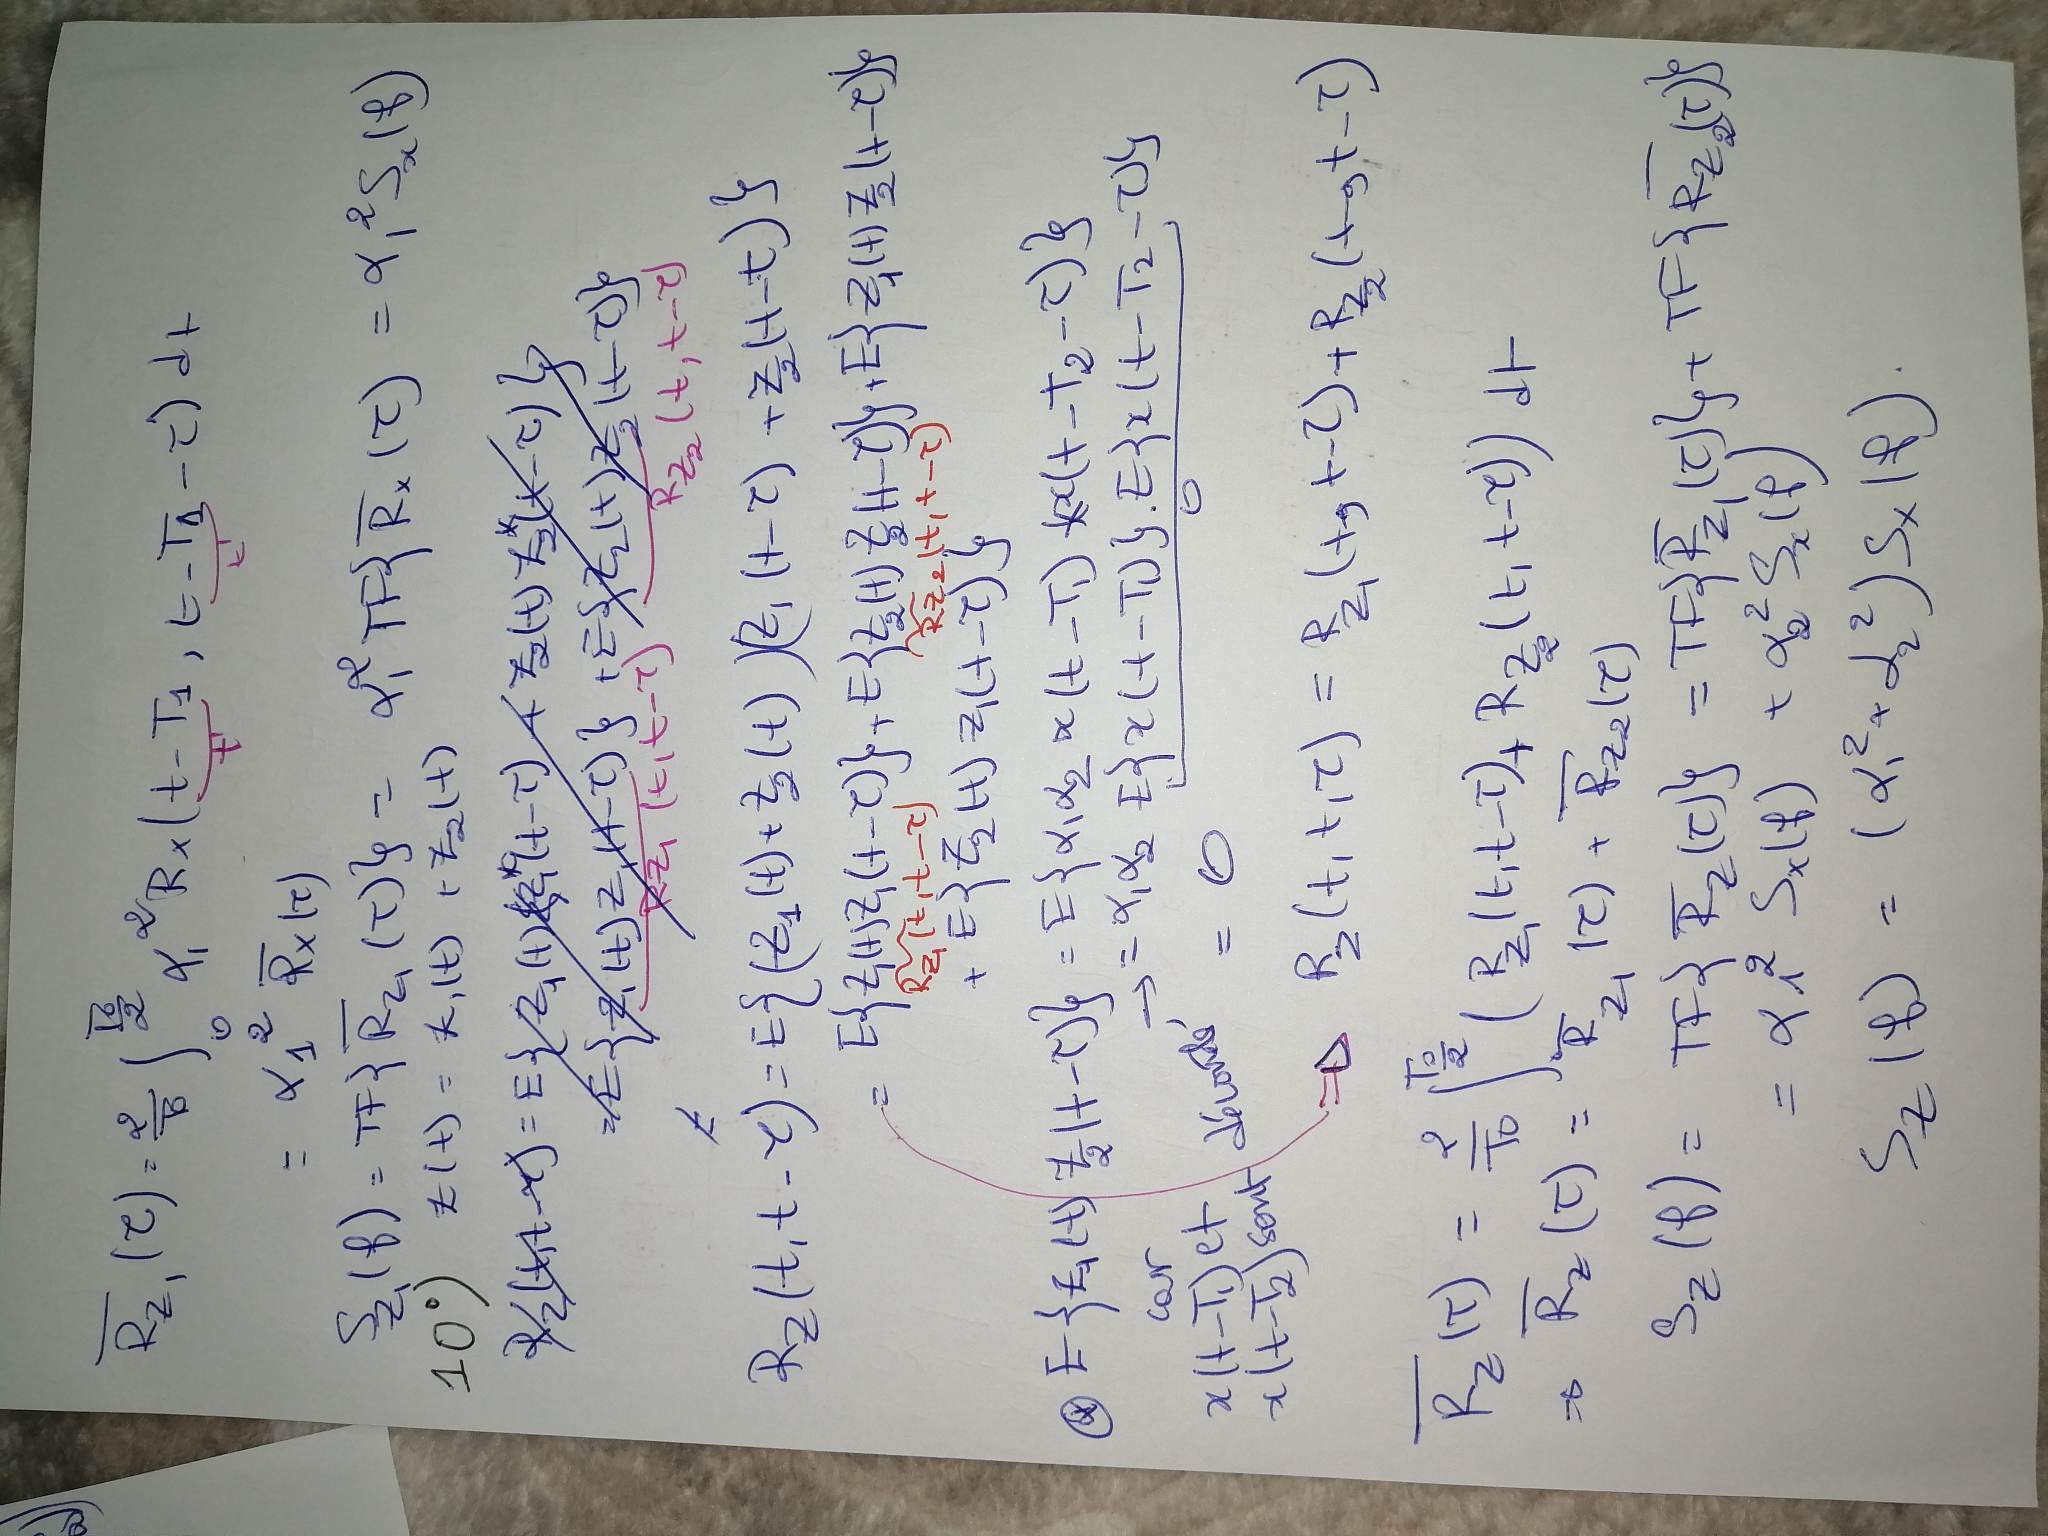 R̅z₁(τ) = 2/T₀ ∫₀^{T₀/2} α₁² Rx(t-T₁, t-T₁-τ) dt
t' t'
= α₁² R̅x(τ)
Sz₁(f) = TF{R̅z₁(τ)} = α₁² TF{R̅x(τ) = α₁² Sx(f)
10°) z(t) = z₁(t) + z₂(t)
Rz(t,t-τ) = E{z₁(t) z₁*(t-τ) + z₂(t) z₂*(t-τ)}
= E{z₁(t) z₁(t-τ)} + E{z₂(t) z₂(t-τ)}
Rz₁(t,t-τ) Rz₂(t,t-τ)
Rz(t,t-τ) = E{(z₁(t) + z₂(t))(z₁(t-τ) + z₂(t-τ)}
= E{z₁(t)z₁(t-τ)} + E{z₂(t) z₂(t-τ)} + E{z₁(t) z₂(t-τ)}
Rz₁(t,t-τ) Rz₂(t,t-τ)
+ E{z₂(t) z₁(t-τ)}
* E{z₁(t) z₂(t-τ)} = E{α₁α₂ x(t-T₁) x(t-T₂-τ)}
→ = α₁α₂ E{x(t-T₁)}.E{x(t-T₂-τ)}
0
car
x(t-T₁) et
x(t-T₂) sont
= 0
⇒ Rz(t,t,τ) = Rz₁(t,t-τ) + Rz₂(t,t-τ)
R̅z(τ) = 2/T₀ ∫₀^{T₀/2} (Rz₁(t,t-τ) + Rz₂(t,t-τ)) dt
⇒ R̅z(τ) = R̅z₁(τ) + R̅z₂(τ)
Sz(f) = TF{R̅z(τ)} = TF{R̅z₁(τ)} + TF{R̅z₂(τ)}
= α₁² Sx(f) + α₂² Sx(f)
Sz(f) = (α₁² + α₂²) Sx(f).